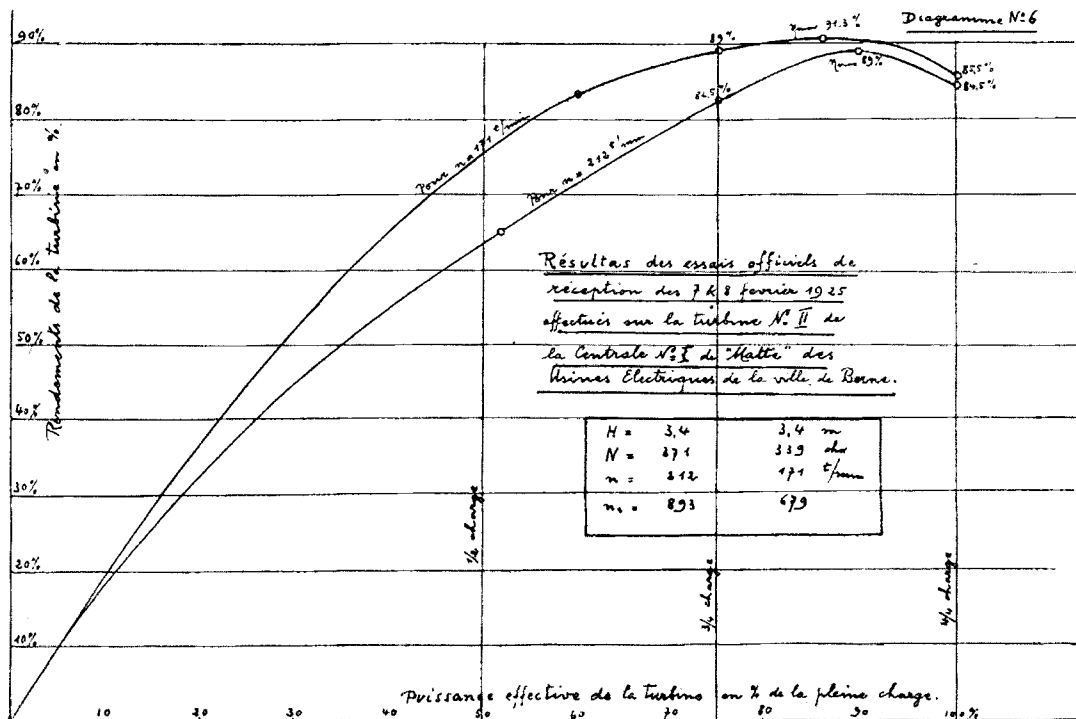 Diagramme No 6
90%
80%
70%
60%
50%
40%
30%
20%
10%
Rendements de la turbine en %.
89%
ηmax 91.3%
ηmax 89%
85,5%
84,5%
82,5%
Pour n = 171 t/min
Pour n = 212 t/min
Résultas des essais officiels de
réception des 7 & 8 fevrier 1925
effectués sur la turbine No II de
la Centrale No I de "Matte" des
Usines Electriques de la ville de Berne.
H = 3,4 3,4 m
N = 371 339 chx
n = 212 171 t/min
ns = 893 679
2/4 charge
3/4 charge
4/4 charge
Puissance effective de la turbine en % de la pleine charge.
10 20 30 40 50 60 70 80 90 100%